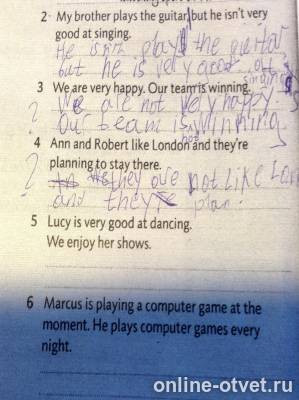 2 My brother plays the guitar, but he isn't very
good at singing.
He isn't play the guitar
but he is very good at
singing
3 We are very happy. Our team is winning.
? We are not very happy.
Our team is winning
not
4 Ann and Robert like London and they're
planning to stay there.
? they are not like Lon
and they're plan.
5 Lucy is very good at dancing.
We enjoy her shows.
6 Marcus is playing a computer game at the
moment. He plays computer games every
night.
online-otvet.ru